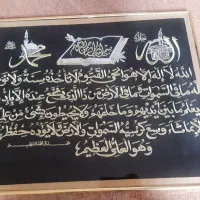 الله
محمد
الله لا إله إلا هو الحي القيوم لا تأخذه سنة ولا نوم
له ما في السموات وما في الأرض من ذا الذي يشفع عنده إلا بإذنه
يعلم ما بين أيديهم وما خلفهم ولا يحيطون بشيء من علمه
إلا بما شاء وسع كرسيه السموات والأرض ولا يؤده حفظهما
وهو العلي العظيم